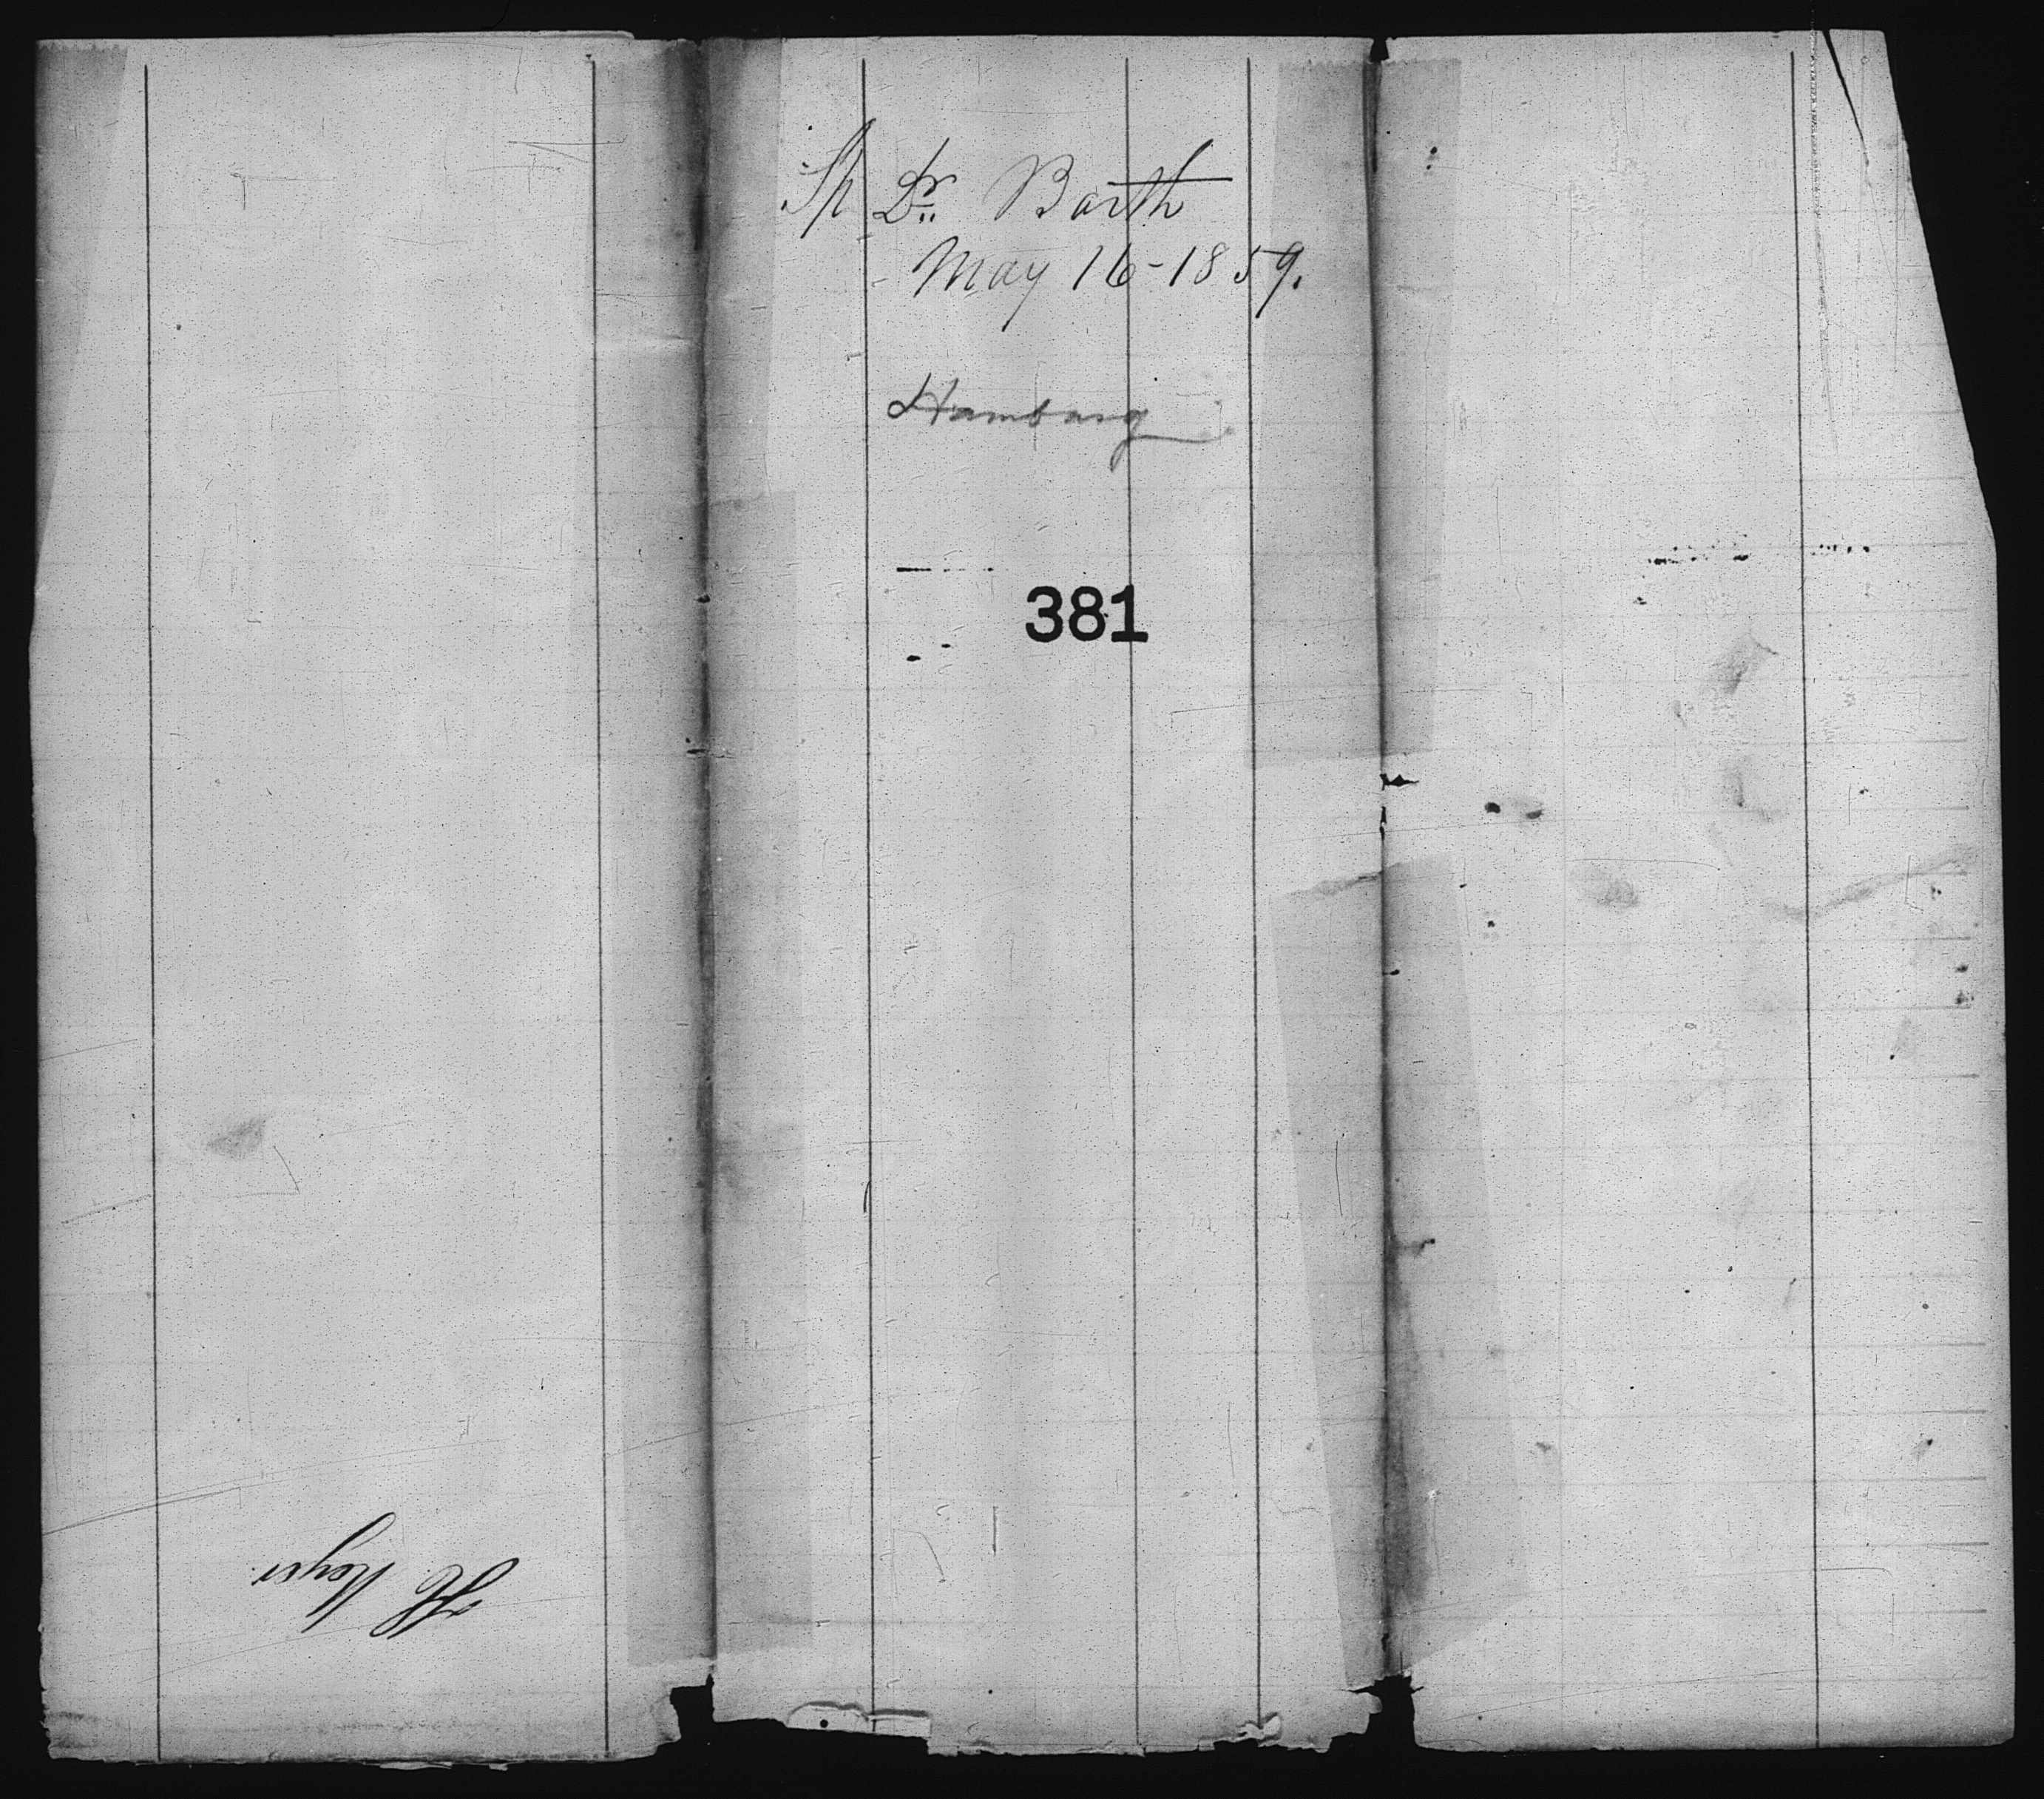 Sh Dr. Barth
May 16-1859.
Hamburg
381
H. Meyer